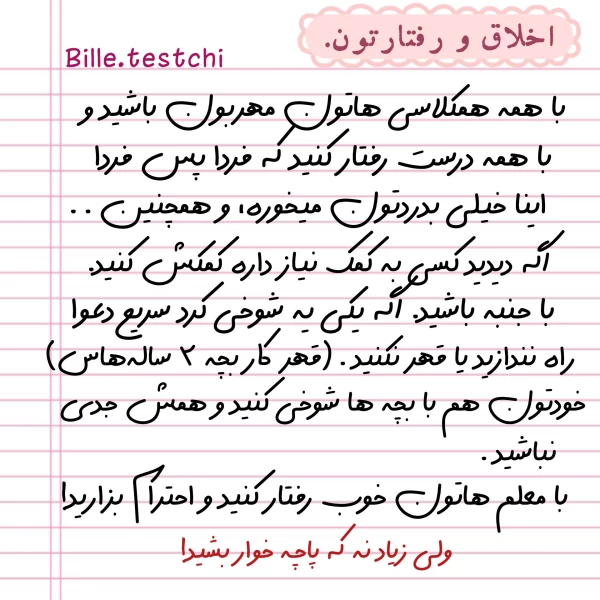 اخلاق و رفتارتون.
Bille.testchi
با همه همکلاسی هاتون مهربون باشید و
با همه درست رفتار کنید که فردا پس فردا
اینا خیلی بدردتون میخوره، و همچنین . .
اگه دیدید کسی به کمک نیاز داره کمکش کنید.
با جنبه باشید. اگه یکی یه شوخی کرد سریع دعوا
راه نندازید یا قهر نکنید. (قهر کار بچه ۲ ساله‌هاس)
خودتون هم با بچه ها شوخی کنید و همش جدی
نباشید.
با معلم هاتون خوب رفتار کنید و احترام بزارید!
ولی زیاد نه که پاچه خوار بشید!